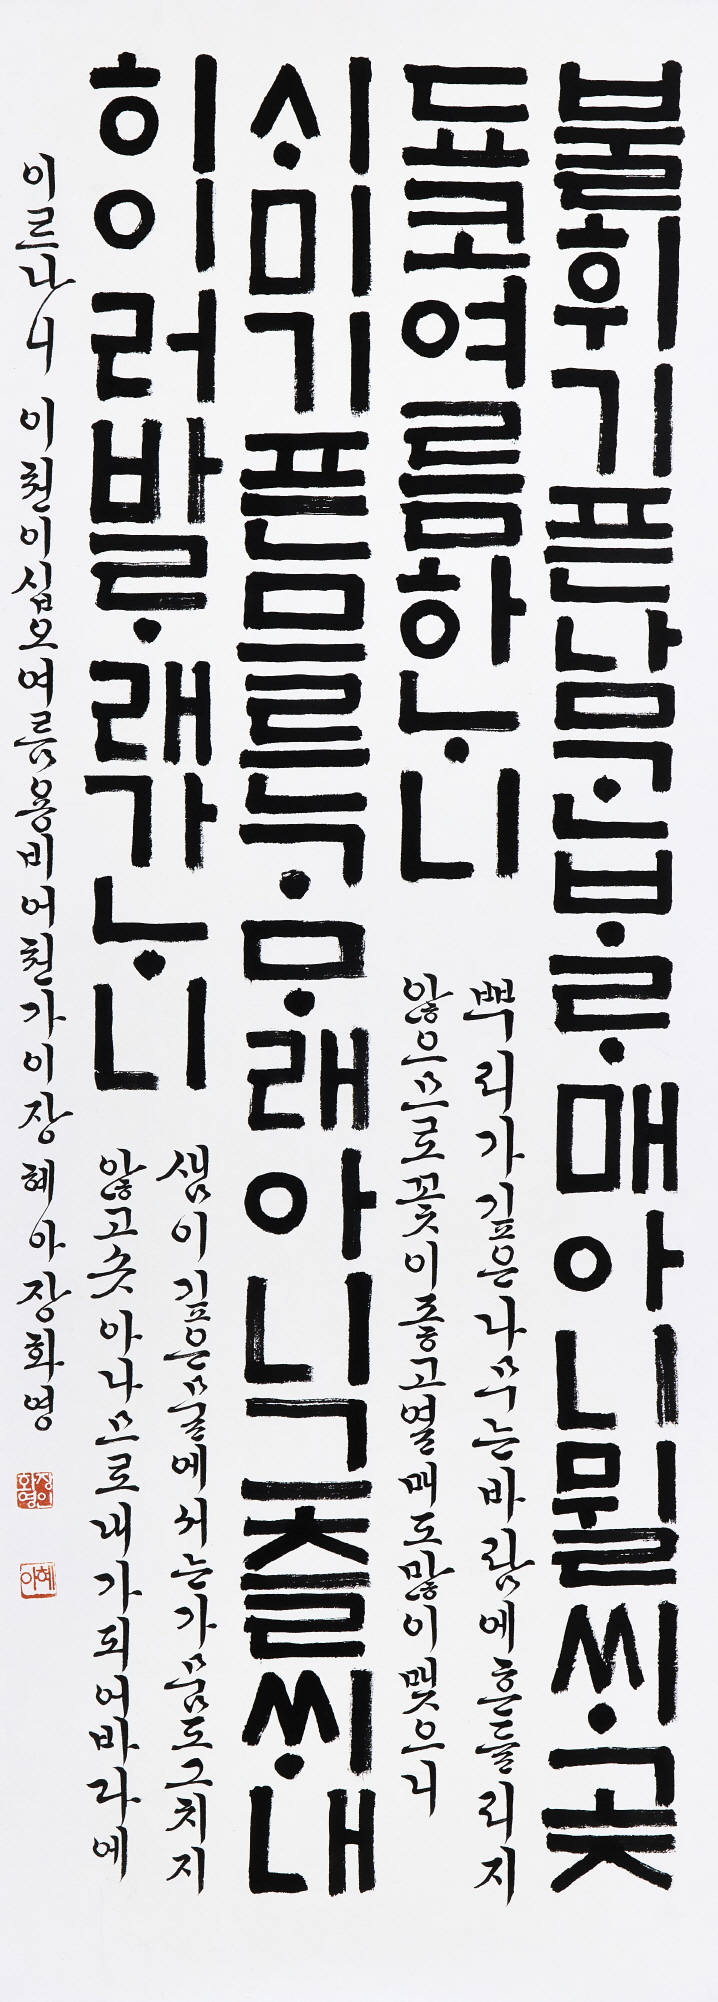 불휘기픈남ᄀᆞᆫᄇᆞᄅᆞ매아니뮐ᄊᆡ곶
됴코여름하ᄂᆞ니
뿌리가깊은나무는바람에흔들리지
않으므로꽃이좋고열매도많이맺으니
ᄉᆡ미기픈므른ᄀᆞᄆᆞ래아니그츨ᄊᆡ내
히이러바ᄅᆞ래가ᄂᆞ니
샘이깊은물에서는가뭄도그치지
않고솟아나므로내가되어바다에
이르나니 이천이십오여름용비어천가이장 혜아장화영
장인화영
혜아